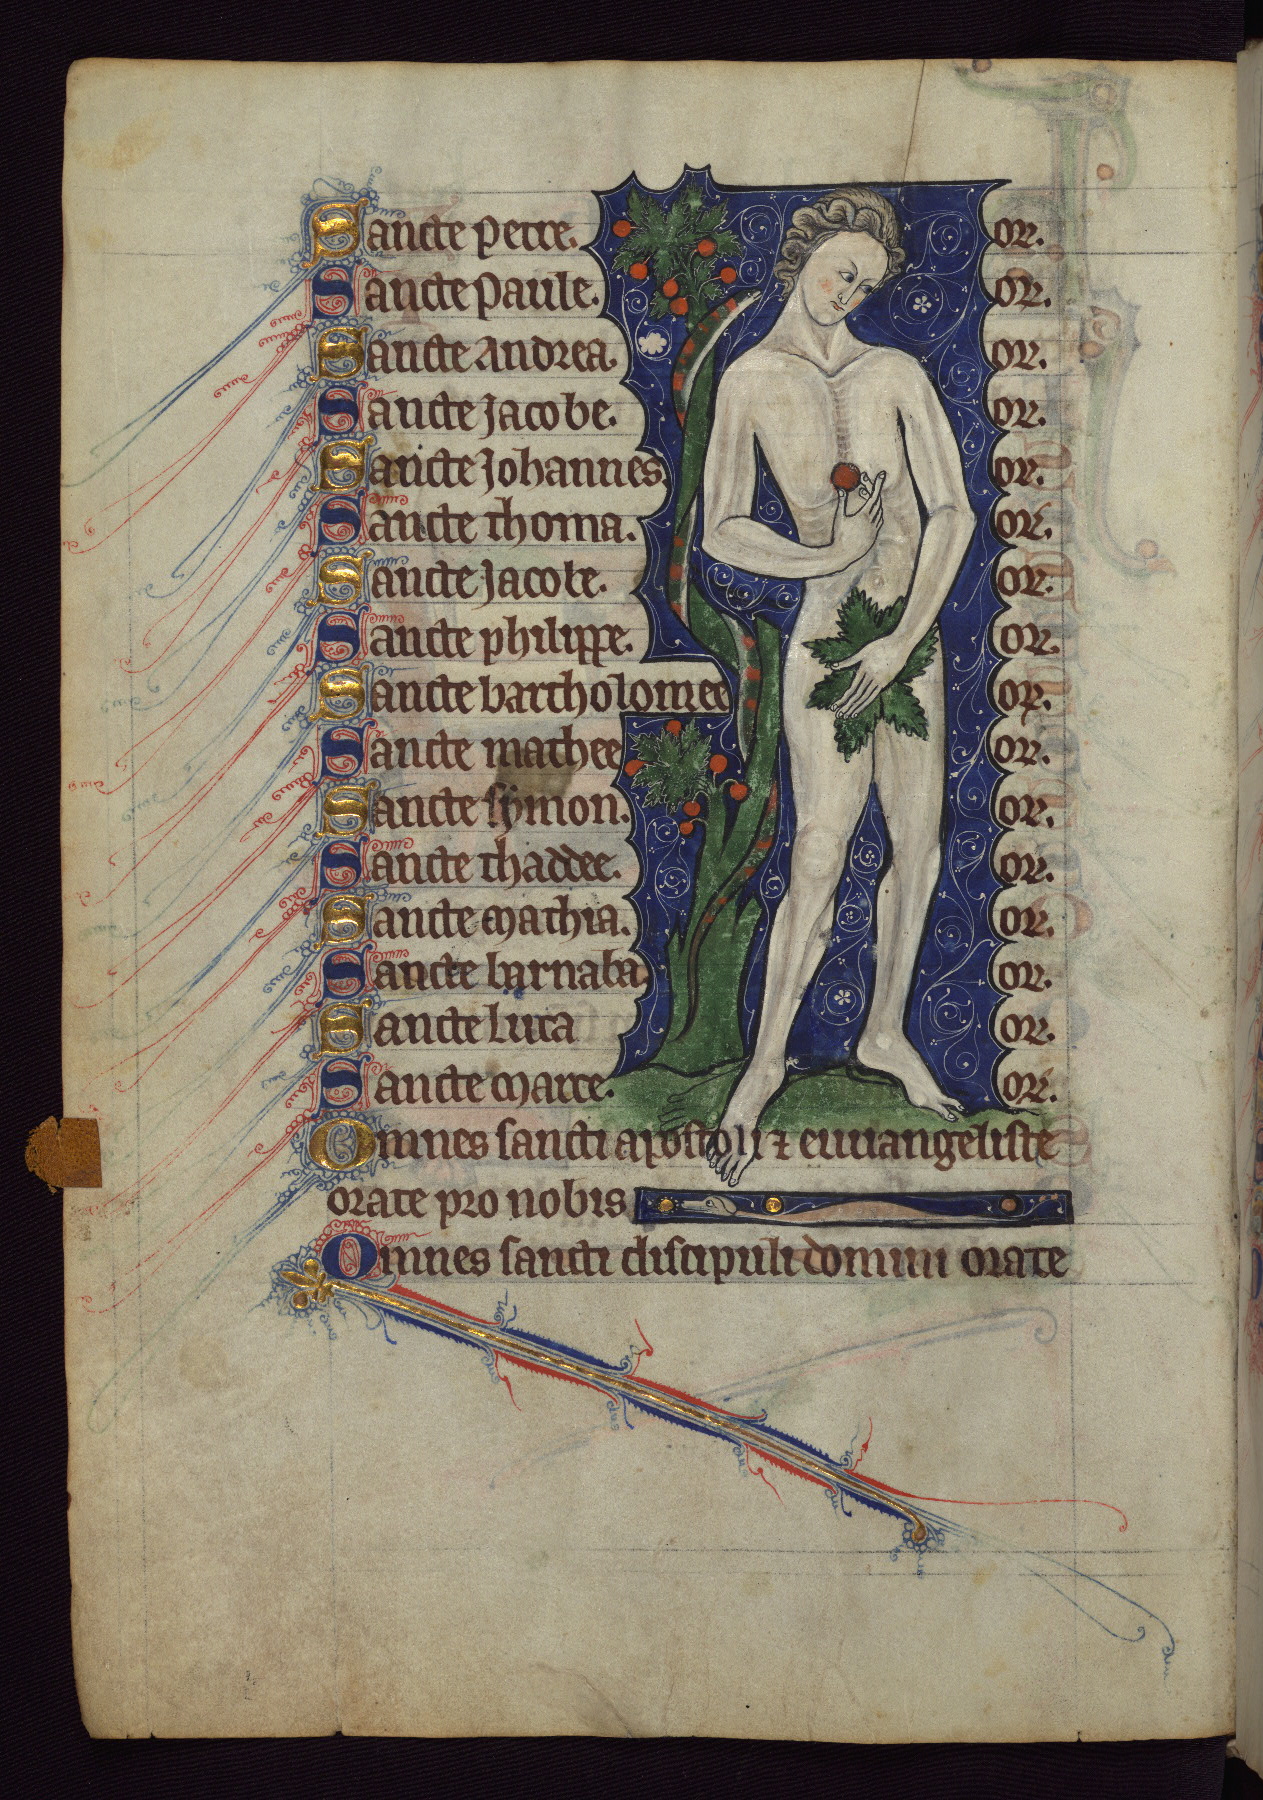 Sancte petre. or.
Sancte Paule. or.
Sancte Andrea. or.
Sancte Jacobe. or.
Sancte Johannes. or.
Sancte thoma. or.
Sancte Jacobe. or.
Sancte philippe. or.
Sancte bartholomee or.
Sancte mathee or.
Sancte symon. or.
Sancte thaddee. or.
Sancte Mathia. or.
Sancte barnaba. or.
Sancte Luca or.
Sancte Marce. or.
Omnes sancti apostoli ⁊ euuangeliste
orate pro nobis
Omnes sancti discipuli domini orate